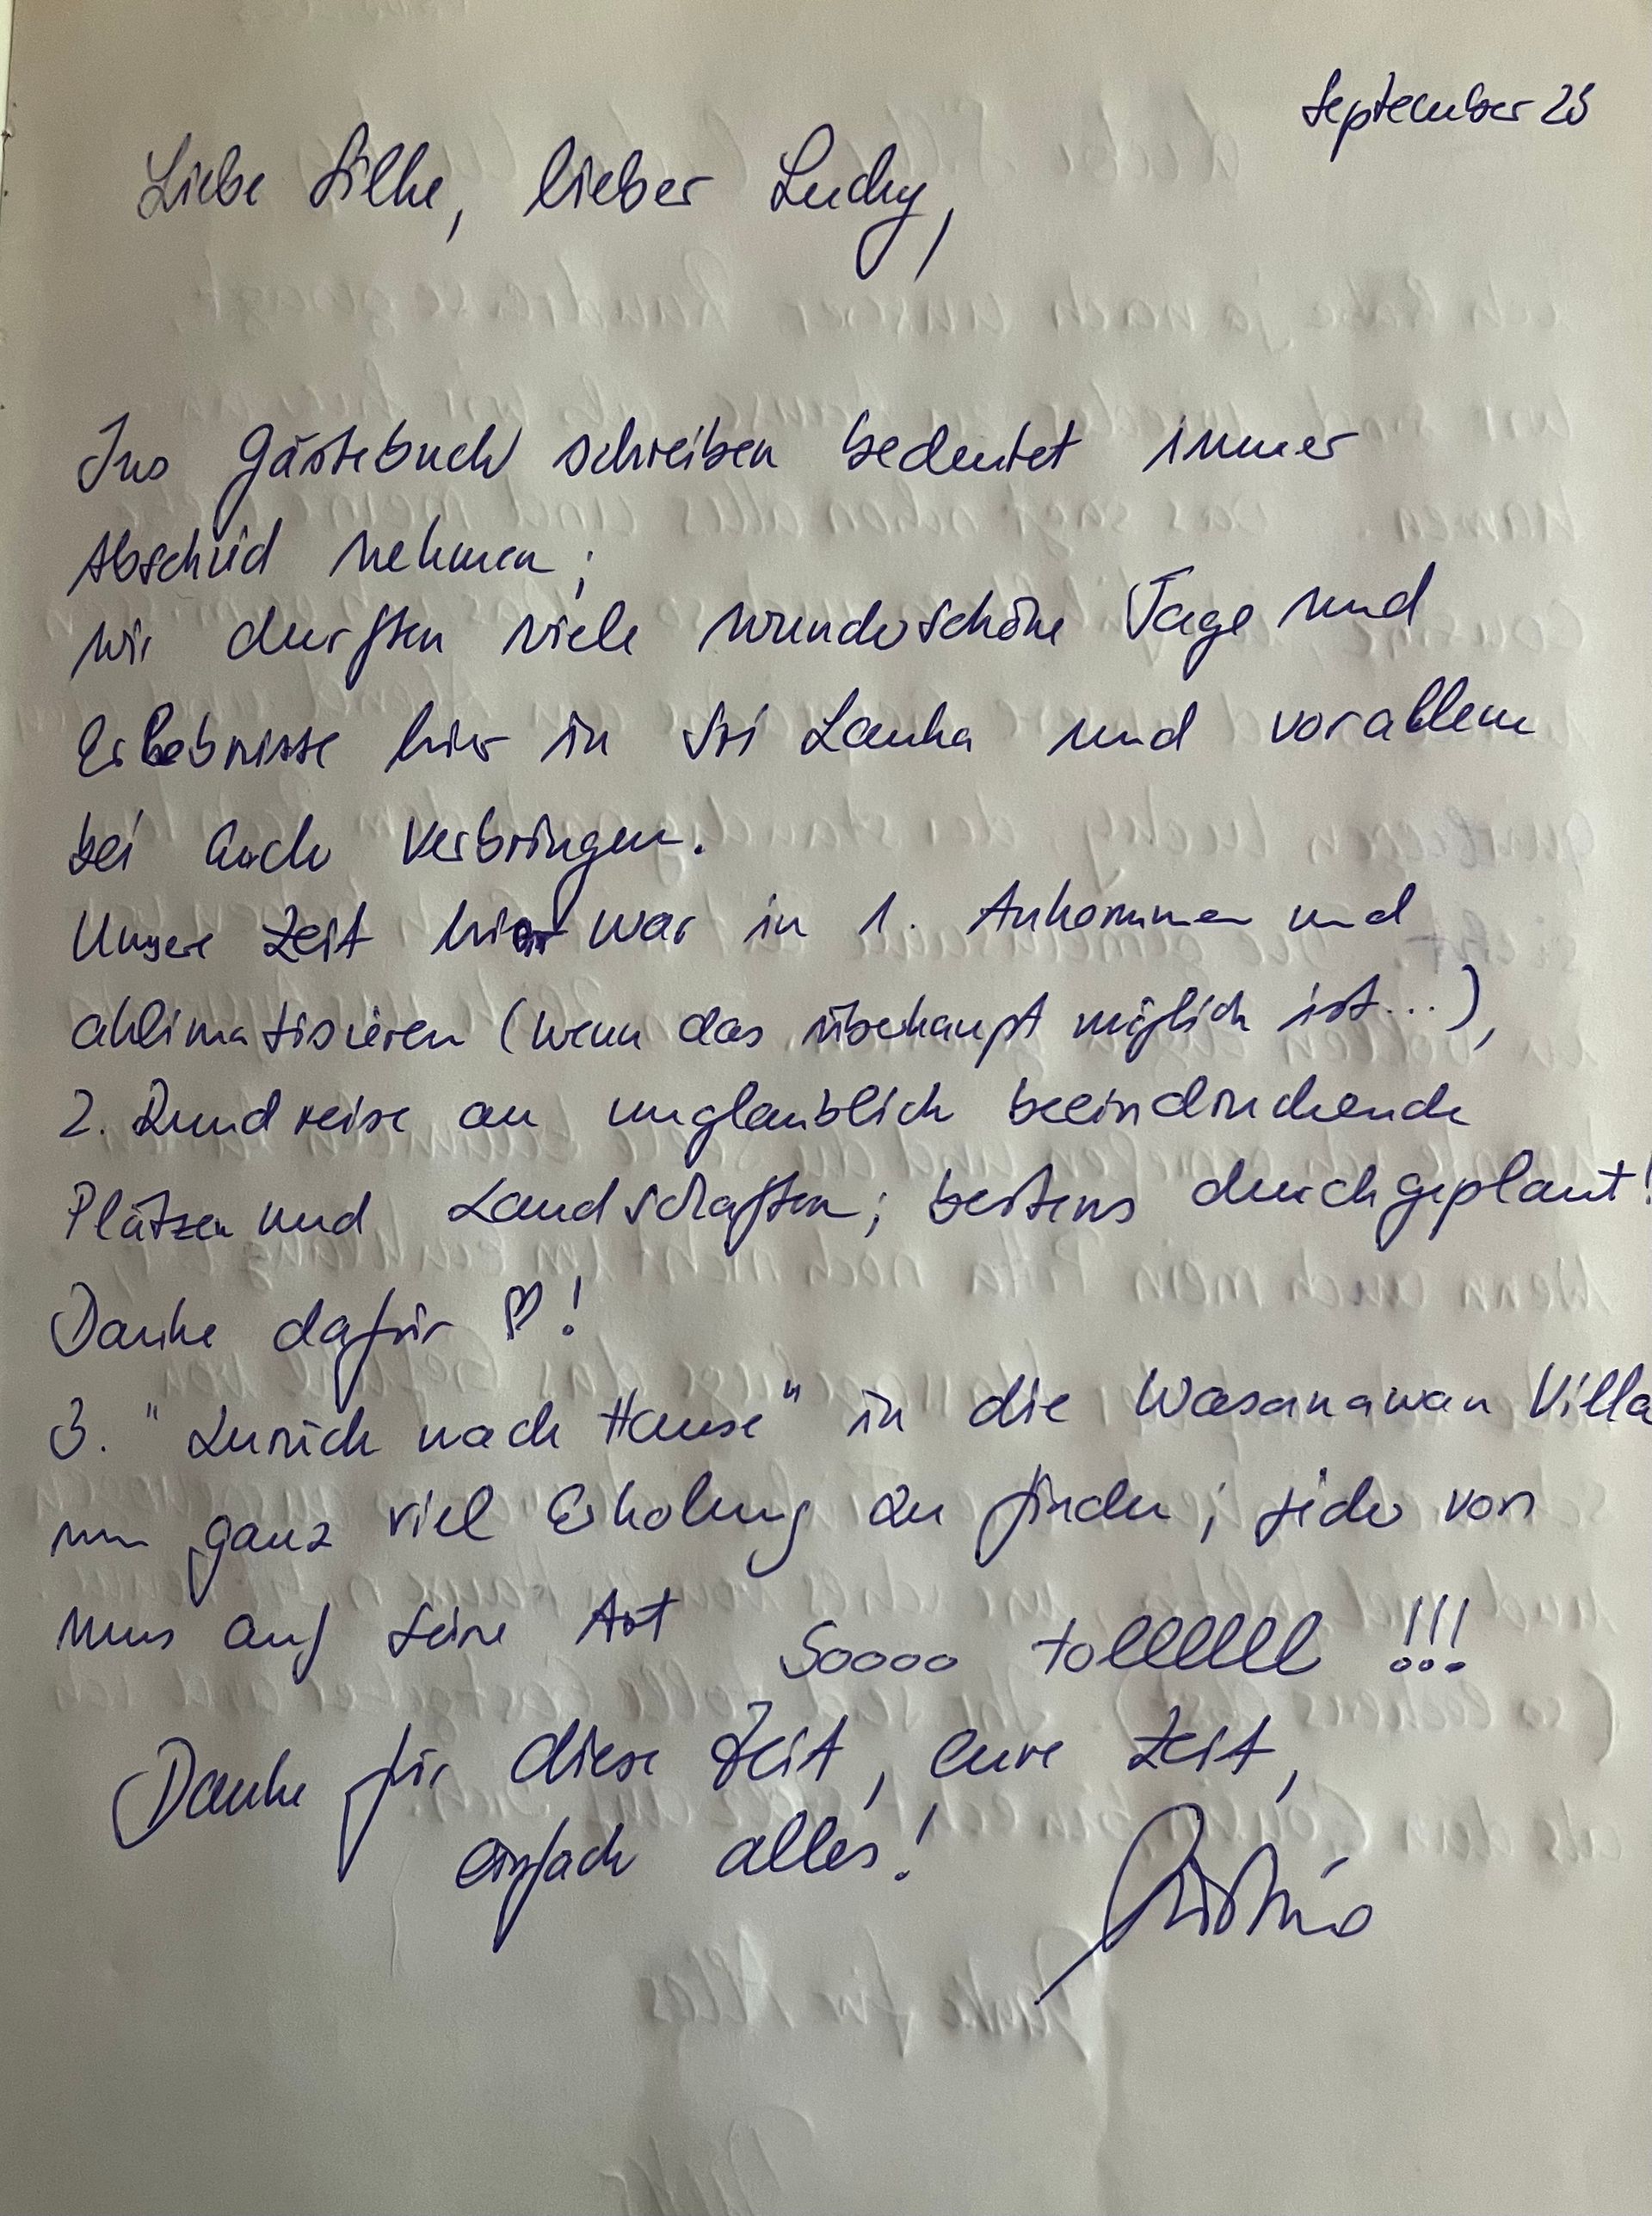 September 23
Liebe Silke, lieber Lucky,
Ins Gästebuch schreiben bedeutet immer
Abschied nehmen;
wir durften viele wunderschöne Tage und
Erlebnisse hier in Sri Lanka und vorallem
bei Euch verbringen.
Unsere Zeit hier war in 1. Ankommen und
aklimatisieren (wenn das überhaupt möglich ist...),
2. Rundreise an unglaublich beeindruckende
Plätzen und Landschaften; bestens durchgeplant!
Danke dafür ♡!
3. "Zurück nach Hause" in die Wasanawan Villa
um ganz viel Erholung zu finden; jeder von
uns auf seine Art Soooo tollllllll !!!
Danke für diese Zeit, eure Zeit,
einfach alles!